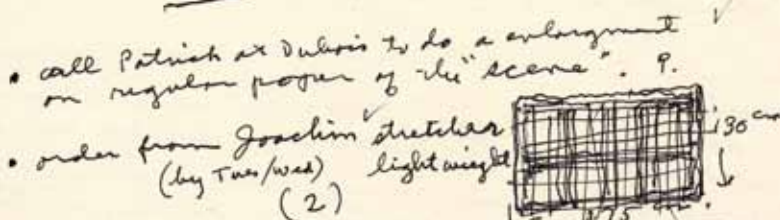 • call Patrick at Dubois to do a enlargment
on regular paper of the "scene". P.
• order from Joachim stretcher
(by Tues/wed) lightweight
(2)
130 cm
175 cm.